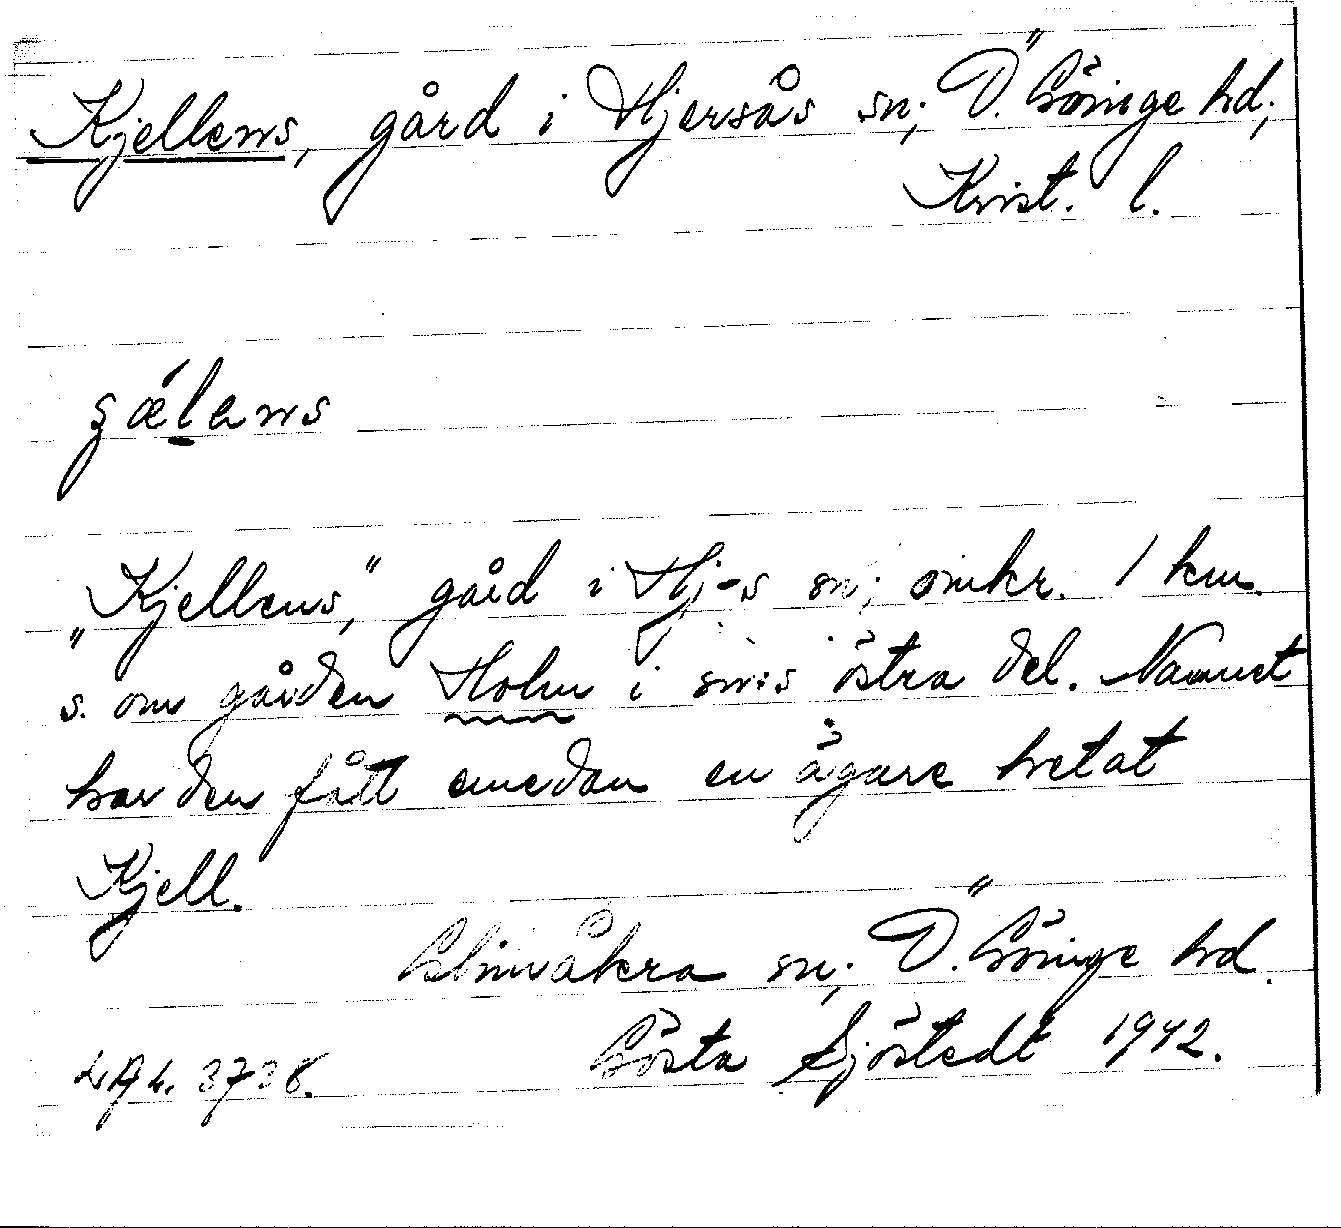 Kjellens, gård i Hjersås sn; Ö. Göinge hd;
Krist. l.
şǽlens
„Kjellens,” gård i Hj-s sn; omkr. 1 km.
s. om gården Holm i sn:s östra del. Namnet
har den fått emedan en ägare hetat
Kjell.
Glimåkra sn; Ö. Göinge hd.
Gösta Sjöstedt 1942.
LAL. 3738.